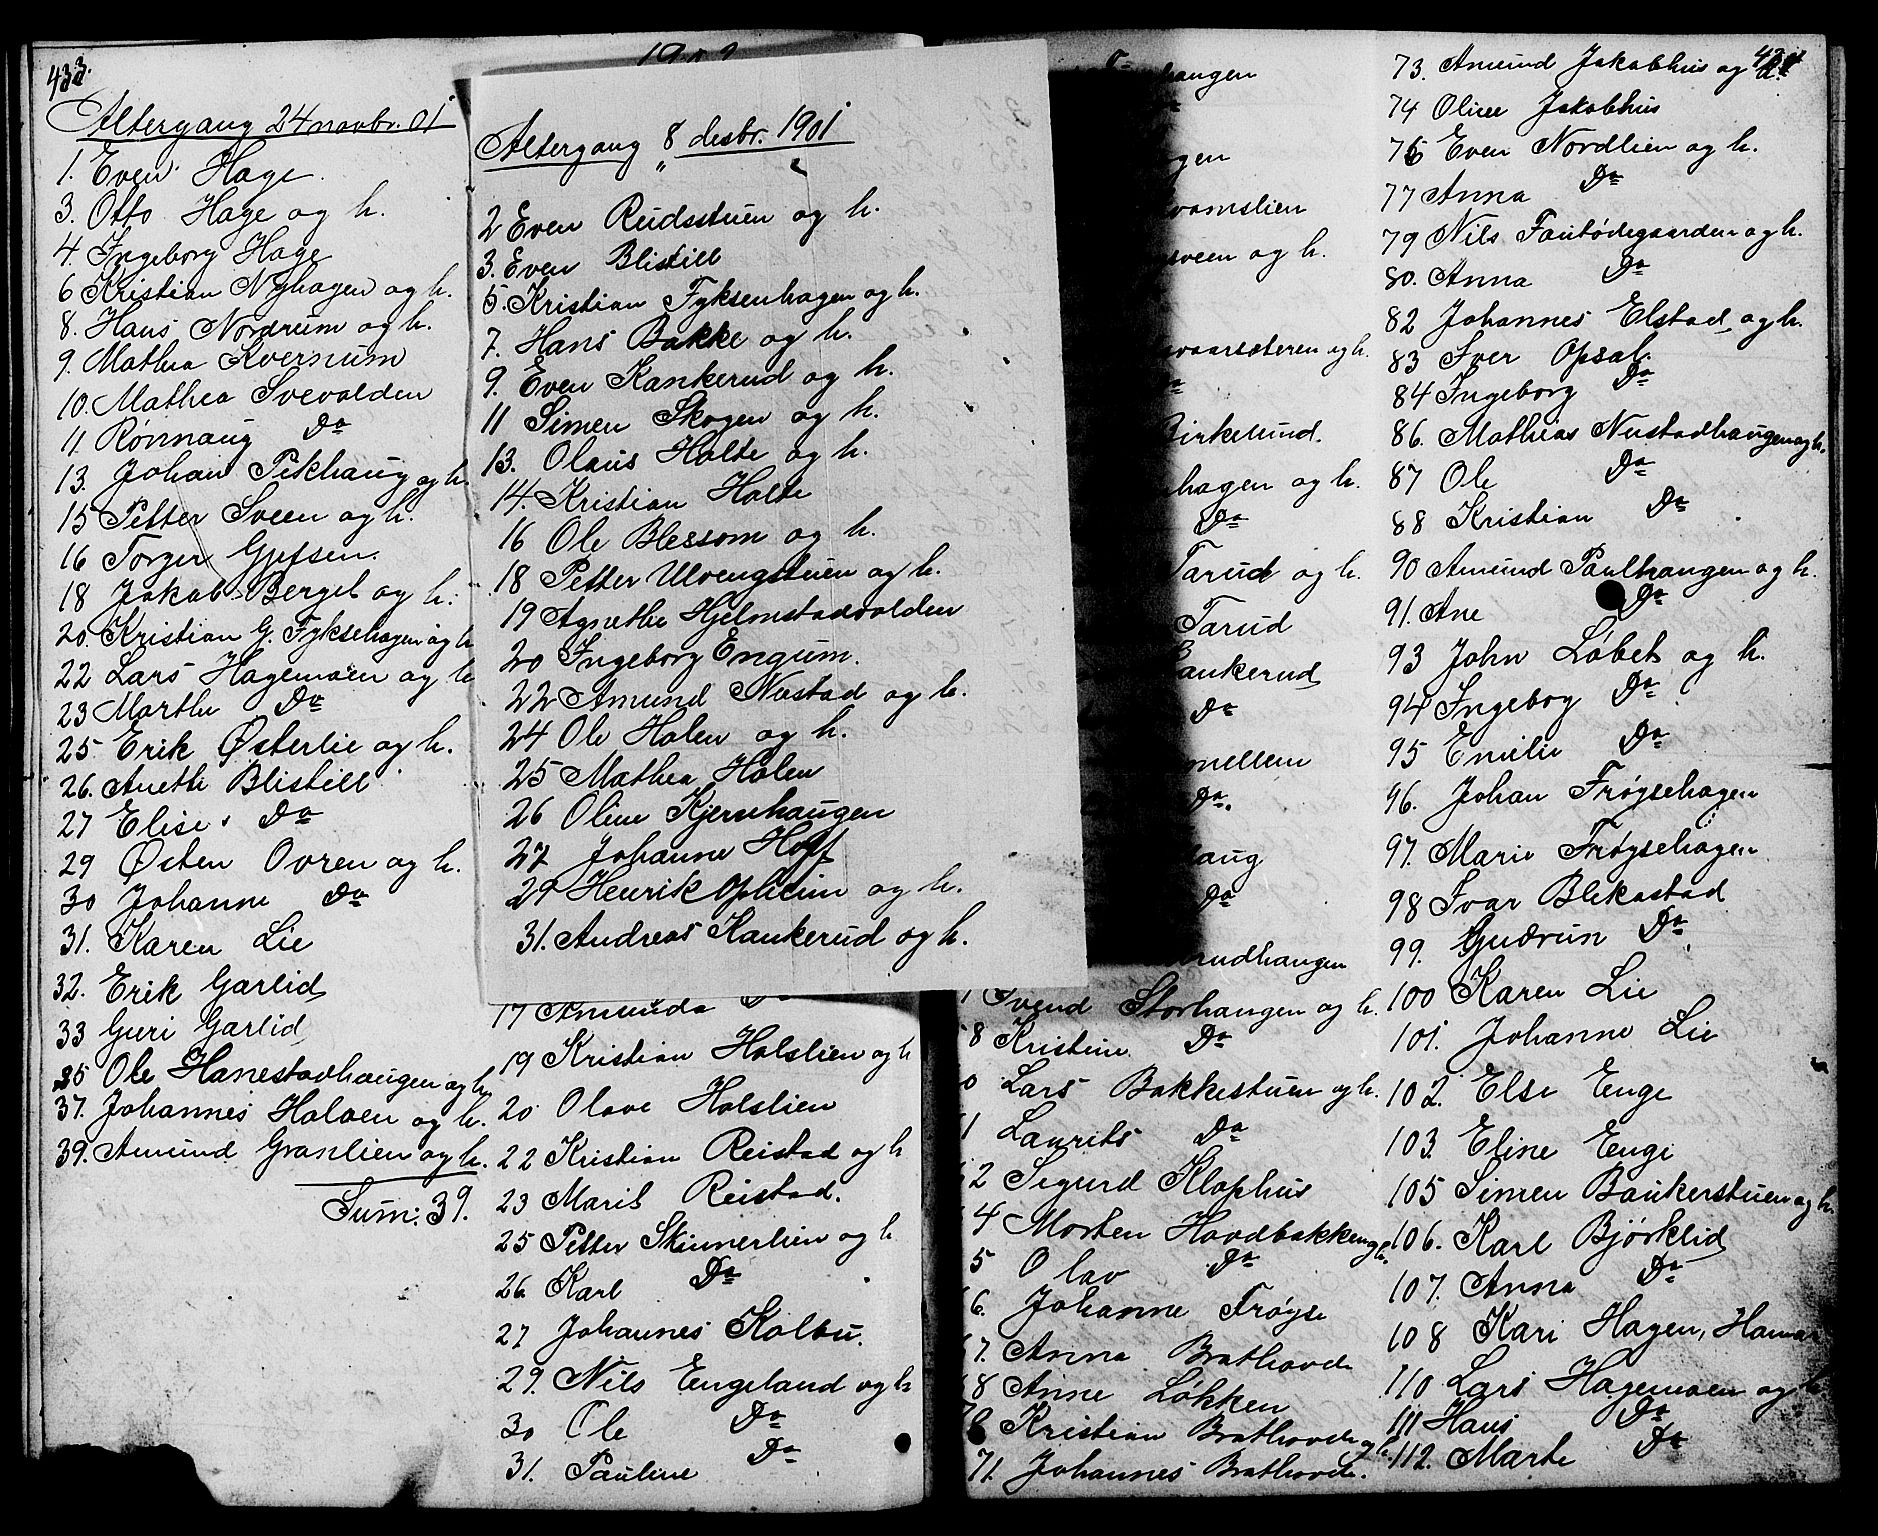 433.
Altergang 24 novbr. 01
1. Even Hage
3. Otto Hage og h.
4. Ingeborg Hage
6 Kristian Nyhagen og h.
8. Hans Nordrum og h.
9. Mathea Kvernum
10. Mathea Svevolden
11 Rønnaug Do
13. Johan Pikhaug og h.
15 Petter Sveen og h.
16 Torger Gjefsen.
18 Jakob Berget og h.
20. Kristian G. Fyksehagen og h
22 Lars Hagemoen og h
23 Marthe Do
25. Erik Østerlie og h.
26. Anette Blistill
27 Elise Do
29 Østen Ovren og h.
30 Johanne Do
31. Karen Lie
32. Erik Garlid
33 Guri Garlid
35 Ole Hanestadhaugen og h.
37. Johannes Holoen og h.
39. Amund Granlien og h.
Sum: 39.
Altergang 8 desbr. 1901
2 Even Reidsstuen og h.
3. Even Blistill
5. Kristian Fyksenhagen og h.
7. Hans Bakke og h.
9. Even Kankerud og h.
11 Simen Skogen og h.
13. Olaus Holte og h.
14. Kristian Holte
16 Ole Blessom og h.
18 Petter Ulvengstuen og h.
19 Agnethe Hjelmstadvolden
20 Ingeborg Engum.
22 Amund Nustad og h.
24 Ole Holen og h.
25 Mathea Holen
26 Oline Kjernehaugen
27 Johanne Hoff
29 Henrik Opheim og h.
31. Andreas Kankerud og h.
17 Amunda Do
19 Kristian Holslien og h
20 Olave Holslien
22 Kristian Reistad og h
23 Marit Reistad.
25 Petter Skinnerlien og h
26 Karl Do
27 Johannes Kolbu.
29. Nils Engeland og h
30 Ole Do
31. Pauline Do
hangen
gen
vomslien
sveen og h.
vaarsæteren og h.
Birkelund.
hagen og h.
Do
Tarud og h.
Tarud
Bankerud
Do
mellem
Do.
haug
Do
rudhaugen
Svend Storhaugen og h.
8 Kristine Do
0 Lars Bakkestuen og h.
1 Laurits Do
2 Sigurd Klophus
4 Morten Hovdbakken og h.
5 Olav Do
6. Johanne Frøyse
7. Anna Brathovde
8 Anne Løkken
Kristian Brathovde og h
71. Johannes Brathovde.
73. Amund Jakobhus og h.
74 Oline Jakobhus
76 Even Nordlien og h.
77 Anna Do
79 Nils Fautødegaarden og h.
80. Anna Do
82 Johannes Elstad og h.
83 Iver Opsal.
84 Ingeborg Do
86. Mathias Nustadhaugen og h.
87 Ole Do
88 Kristian Do
90 Amund Paulhaugen og h.
91. Ane Do
93 John Løbet og h.
94 Ingebog Do
95 Emilie Do
96. Johan Frøysehagen
97. Marie Frøysehagen
98 Ivar Blekastad
99. Gudrun Do
100 Karen Lie
101. Johanne Lie
102. Else Enge
103. Eline Enge
105 Simen Baukerstuen og h.
106. Karl Bjørklid
107. Anna Do
108 Kari Hagen, Hamar
110 Lars Hagemoen og h.
111 Hans Do
112. Marte Do